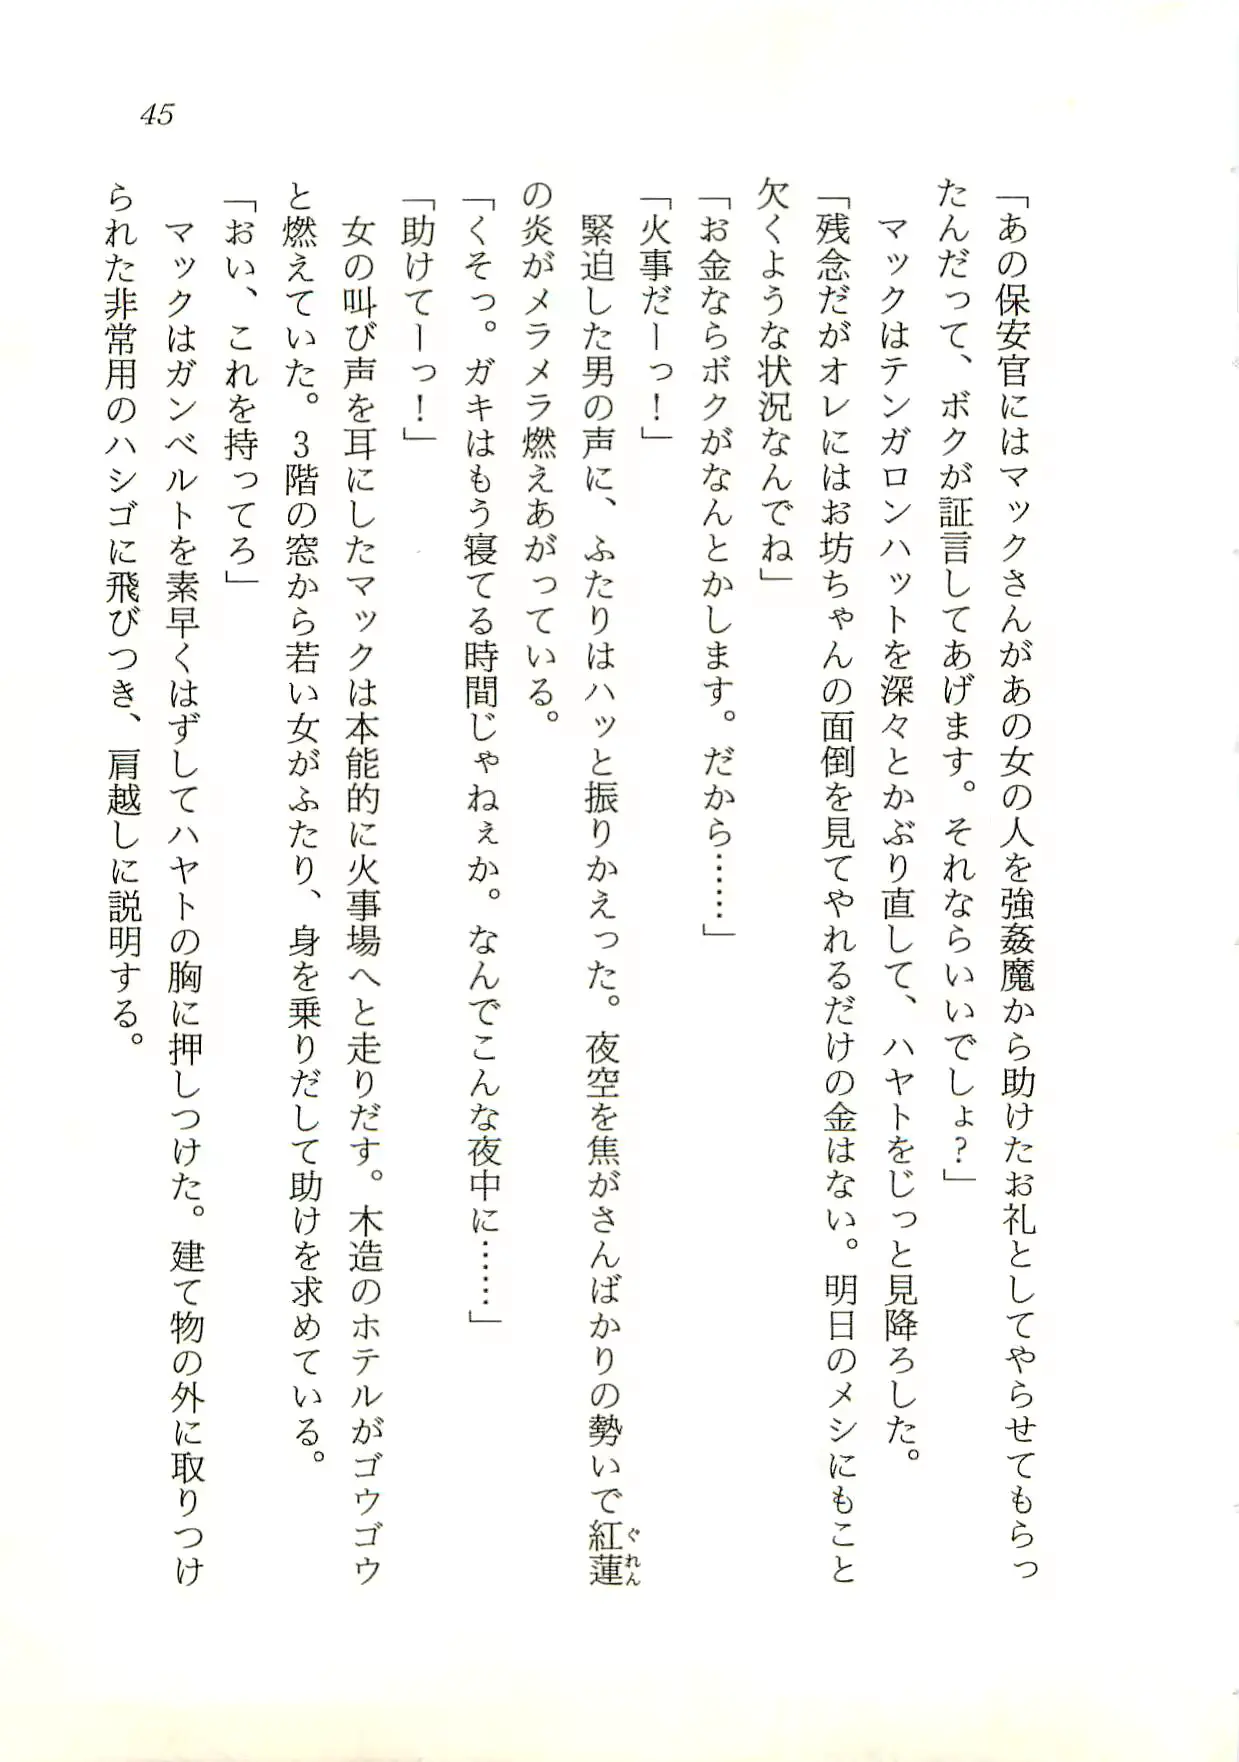 45
「あの保安官にはマックさんがあの女の人を強姦魔から助けたお礼としてやらせてもらっ
たんだって、ボクが証言してあげます。それならいいでしょ?」
マックはテンガロンハットを深々とかぶり直して、ハヤトをじっと見降ろした。
「残念だがオレにはお坊ちゃんの面倒を見てやれるだけの金はない。明日のメシにもこと
欠くような状況なんでね」
「お金ならボクがなんとかします。だから……」
「火事だーっ!」
緊迫した男の声に、ふたりはハッと振りかえった。夜空を焦がさんばかりの勢いで紅蓮
ぐれん
の炎がメラメラ燃えあがっている。
「くそっ。ガキはもう寝てる時間じゃねぇか。なんでこんな夜中に……」
「助けてーっ!」
女の叫び声を耳にしたマックは本能的に火事場へと走りだす。木造のホテルがゴウゴウ
と燃えていた。3階の窓から若い女がふたり、身を乗りだして助けを求めている。
「おい、これを持ってろ」
マックはガンベルトを素早くはずしてハヤトの胸に押しつけた。建て物の外に取りつけ
られた非常用のハシゴに飛びつき、肩越しに説明する。